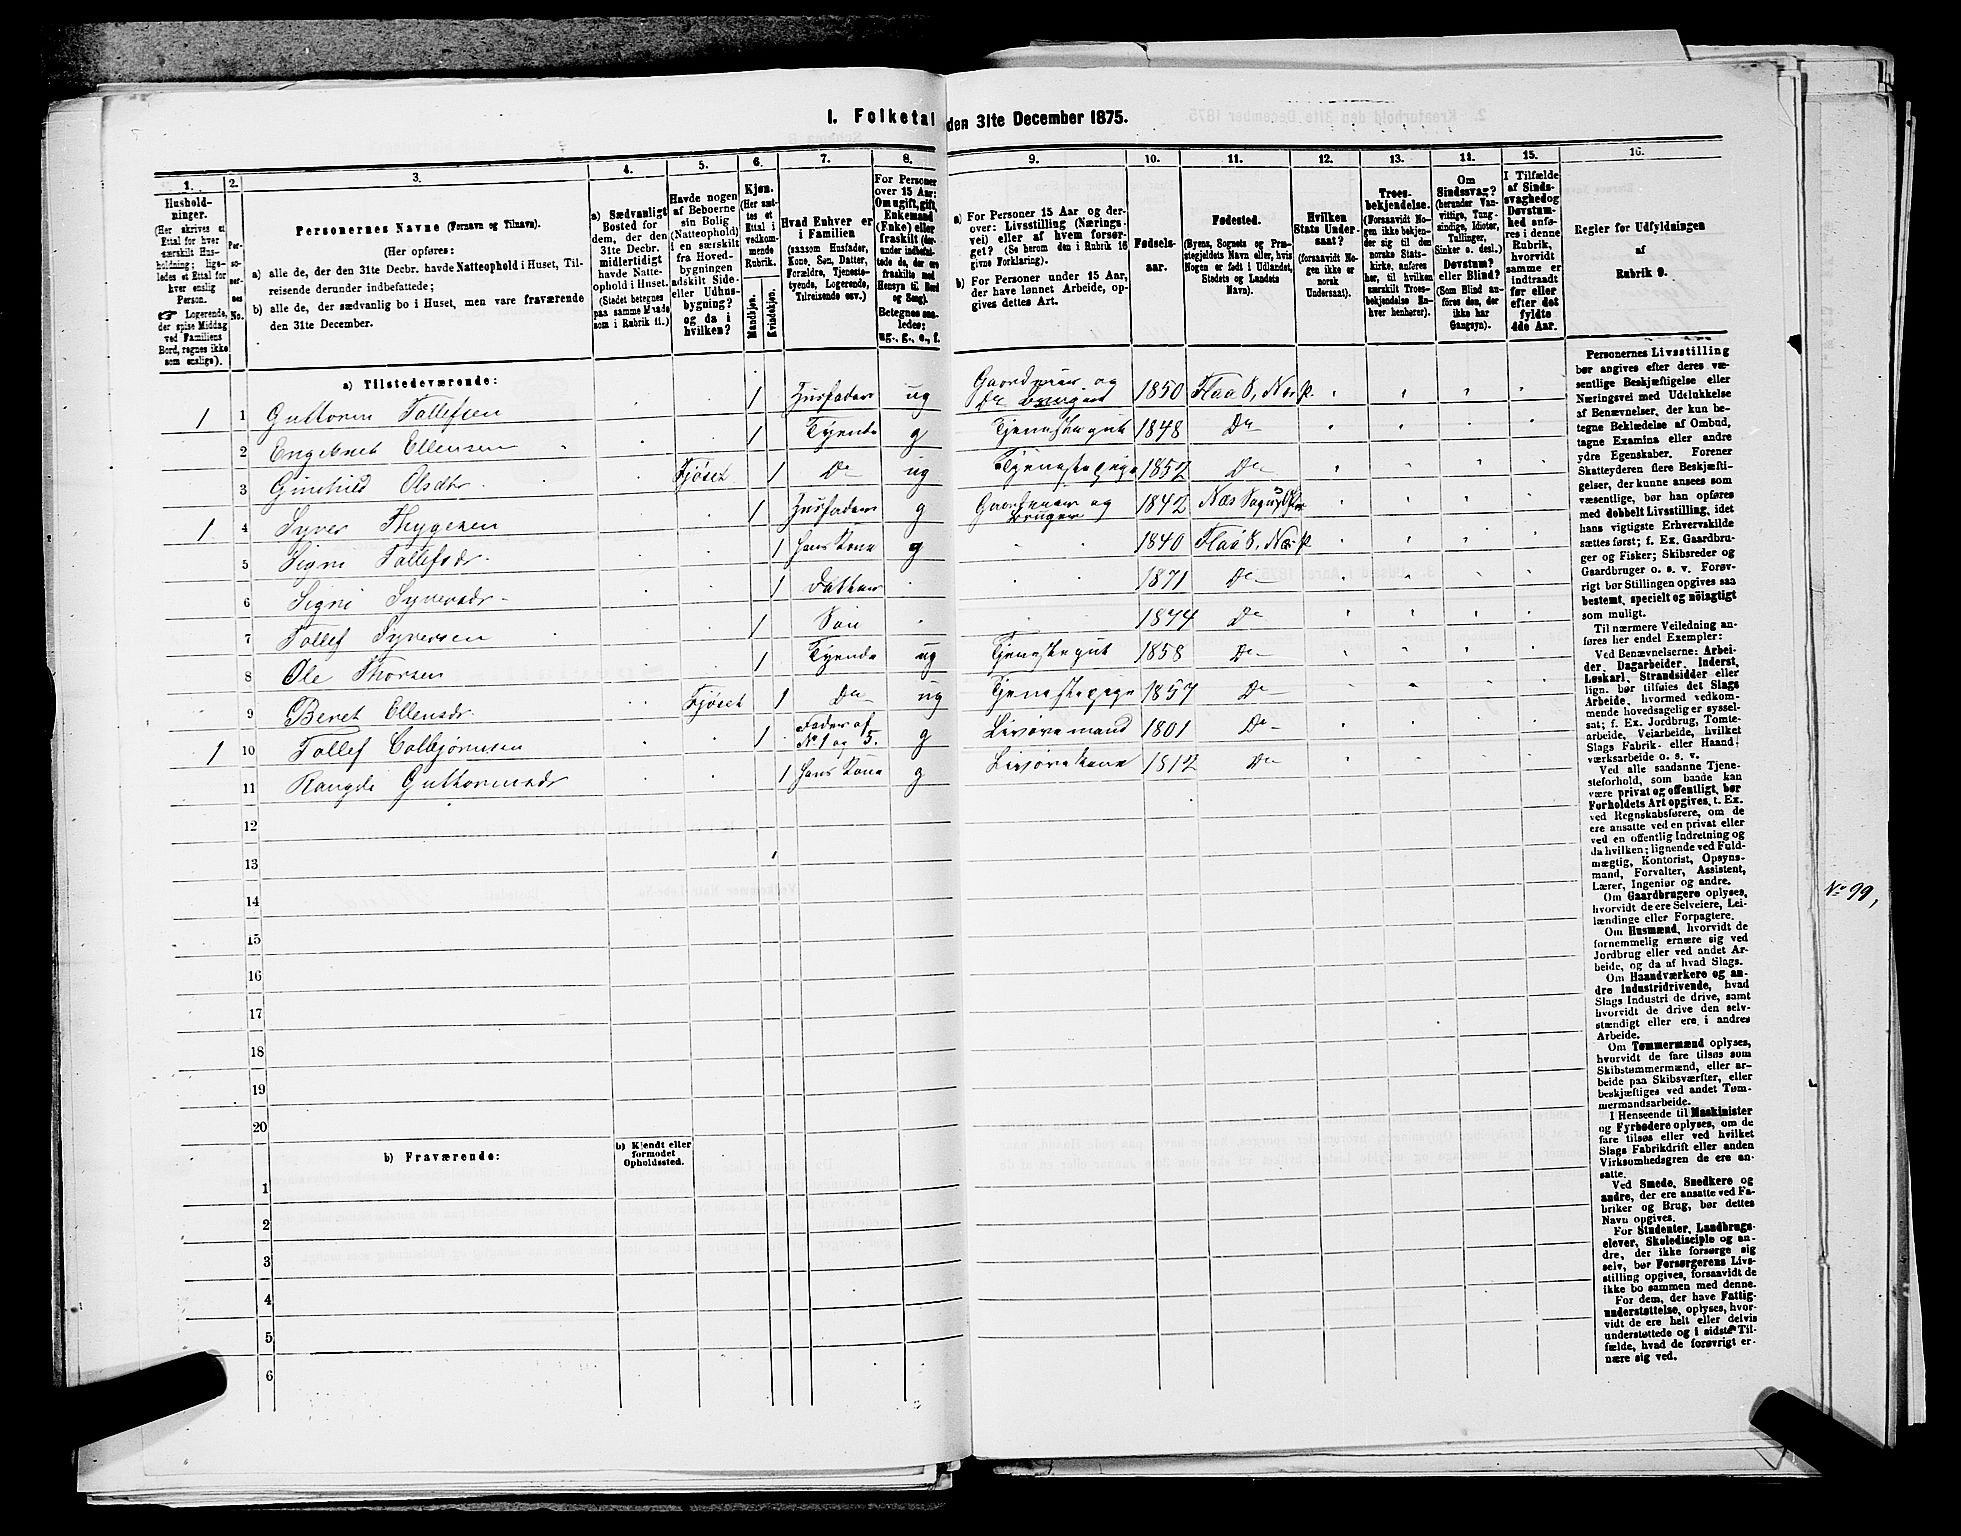 I. Folketal den 31te December 1875.
1. 2. 3. 4. 5. 6. 7. 8. 9. 10. 11. 12. 13. 14. 15. 16.
Husholdninger.
(Her skrives et Ettal for hver særskilt Husholdning; ligeledes et Ettal for hver enslig Person.
☞ Logerende, der spise Middag ved Familiens Bord, regnes ikke som enslige).
Personernes No.
Personernes Navne (Fornavn og Tilnavn).
(Her opføres:
a) alle de, der den 31te Decbr. havde Natteophold i Huset, Tilreisende derunder indbefattede;
b) alle de, der sædvanlig bo i Huset, men vare fraværende den 31te December.
a) Sædvanligt Bosted for dem, der den 31te Decbr. midlertidigt havde Natteophold i Huset.
(Stedet betegnes paa samme Maade som i Rubrik 11.)
Havde nogen af Beboerne sin Bolig (Natteophold) i en særskilt fra Hovedbygningen adskilt Side- eller Udhusbygning? og da i hvilken?
Kjøn.
(Her sættes et Ettal i vedkommende Rubrik.
Mandkjøn.
Kvindekjøn.
Hvad Enhver er i Familien
(saasom Husfader, Kone, Søn, Datter, Forældre, Tjenestetyende, Logerende, Tilreisende osv.)
For Personer over 15 Aar: Om ugift, gift, Enkemand (Enke) eller fraskilt (derunder indbefattede de, der ere fraskilte med Hensyn til Bord og Seng).
Betegnes saaledes: ug., g., e., f.
a) For Personer 15 Aar og derover: Livsstilling (Næringsvei) eller af hvem forsørget? (Se herom den i Rubrik 16 givne Forklaring).
b) For Personer under 15 Aar, der have lønnet Arbeide, opgives dettes Art.
Fødselsaar.
Fødested.
(Byens, Sognets og Præstegjeldets Navn eller, hvis Nogen er født i Udlandet, Stedets og Landets Navn).
Hvilken Stats Undersaat?
(forsaavidt Nogen ikke er norsk Undersaat).
Troesbekjendelse.
(Forsaavidt Nogen ikke bekjender sig til den norske Statskirke, anføres her, til hvilken særskilt Troesbekjendelse Enhver henhører).
Om Sindssvag? (herunder Vanvittige, Tungsindige, Idioter, Tullinger, Sinker o. desl.) Døvstum? eller Blind? (Som Blind anføres den, der ikke har Gangsyn).
I Tilfælde af Sindssvaghed og Døvstumhed anføres i denne Rubrik, hvorvidt samme er indtraadt før eller efter det fyldte 4de Aar.
Regler for Udfyldningen af Rubrik 9.
a) Tilstedeværende:
1 1 Guttorm Tollefsen 1 Husfader ug Gaardeier og 1850 Flaa S, Næs P.
2 Engebret Ellensen 1 Tyende g Tjenestegut 1848 Do
3 Gunhild Olsdtr. Fjøset 1 Do ug Tjenestepige 1852 Do
1 4 Syver Thygesen 1 Husfader g Gaardeier og Bruger 1842 Næs
5 Signi Tollefsdr. 1 Hans Kone g 1840 Flaa S, Næs P
6 Signi Syversdr. 1 Datter 1871 Do
7 Tollef Syversen 1 Søn 1874 Do
8 Ole Thorsen 1 Tyende ug Tjenestegut 1858 Do
9 Beret Ellensdr. Fjøset 1 Do ug Tjenestepige 1857 Do
1 10 Tollef Colbjørnsen 1 Fader af No 1 og 5. g Livøremand 1801 Do
11 Rangdi Guttormsdr 1 Hans Kone g Livørekone 1812 Do
12
13
14
15
16
17
18
19
20
b) Fraværende:
b) Kjendt eller formodet Opholdssted.
1
2
3
4
5
6
Personernes Livsstilling
bør angives efter deres væ-
sentlige Beskjæftigelse eller
Næringsvei med Udelukkelse
af Benævnelser, der kun be-
tegne Beklædelse af Ombud,
tagne Examina eller andre
ydre Egenskaber. Forener
Skatteyderen flere Beskjæfti-
gelser, der kunne ansees som
væsentlige, bør han opføres
med dobbelt Livsstilling, idet
hans vigtigste Erhvervskilde
sættes først; f. Ex. Gaardbru-
ger og Fisker; Skibsreder og
Gaardbruger o. s. v. Forøv-
rigt bør Stillingen opgives saa
bestemt, specielt og nöiagtigt
som muligt.
Til nærmere Veiledning an-
føres her endel Exempler:
Ved Benævnelserne: Arbei-
der, Dagarbeider, Inderst,
Løskarl, Strandsidder eller
lign. bør tilføies det Slags
Arbeide, hvormed vedkom-
mende hovedsagelig er syssel-
sat; f. Ex. Jordbrug, Tomte-
arbeide, Veiarbeide, hvilket
Slags Fabrik- eller Haand-
værksarbeide o. s. v.
Ved alle saadanne Tjene-
steforhold, som baade kan
være privat og offentligt, bør
Forholdets Art opgives, t. Ex.
ved Regnskabsførere, om de
ere ansatte ved en privat eller
ved en offentlig Indretning og
da hvilken; lignende ved Fuld-
mægtig, Kontorist, Opsyns-
mand, Forvalter, Assistent,
Lærer, Ingeniør og andre.
Om Gaardbrugere oplyses,
hvorvidt de ere Selveiere, Lei-
lændinge eller Forpagtere.
Om Husmænd, hvorvidt de
fornemmelig ernære sig ved
Jordbrug eller ved andet Ar-
beide, og da af hvad Slags.
Om Haandværkere og an-
dre Industridrivende, hvad
Slags Industri de drive, samt
hvorvidt de drive den selv-
stændigt eller ere i andres
Arbeide.
Om Tømmermænd oplyses,
hvorvidt de fare tilsøs som
Skibstømmermænd, eller ar-
beide paa Skibsværfter, eller
beskjæftiges ved andet Tøm-
mermandsarbeide.
I Henseende til Maskinister
og Fyrbødere oplyses, om de
fare tilsøs eller ved hvilket
Slags Fabrikdrift eller anden
Virksomhedsgren de ere an-
satte.
Ved Smede, Snedkere og
andre, der ere ansatte ved Fa-
briker og Brug, bør dettes
Navn opgives.
For Studenter, Landbrugs-
elever, Skoledisciple og an-
dre, der ikke forsørge sig
selv, bør Forsørgerens Livs-
stilling opgives, forsaavidt de
ikke bo sammen med denne.
For dem, der have Fattig-
understøttelse, oplyses, hvor-
vidt de ere helt eller delvis
understøttede og i sidste Til-
fælde, hvad de forøvrigt er-
nære sig ved.
No 99,